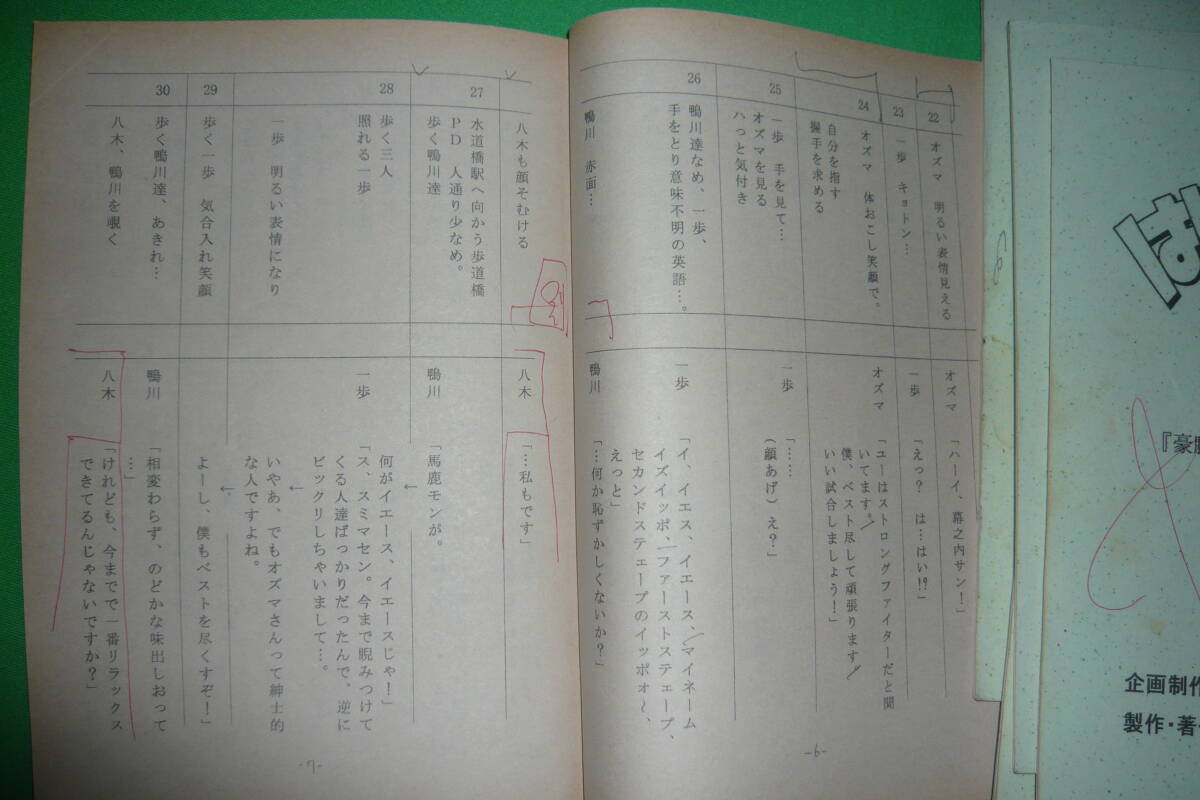 22
オズマ 明るい表情見える
オズマ
「ハーイ、幕之内サン!」
23
一歩 キョトン…
一歩
「えっ? は…はい!?」
24
オズマ 体おこし笑顔で。
自分を指す
握手を求める
オズマ
「ユーはストロングファイターだと聞
いてます。
僕、ベスト尽して頑張ります
いい試合しましょう!」
25
一歩 手を見て…
オズマを見る
ハっと気付き
一歩
「……
(顔あげ) え?」
26
鴨川達なめ、一歩、
手をとり意味不明の英語…。
一歩
「イ、イエス、イエース、マイネーム
イズイッポ、ファーストステェープ、
セカンドステェープのイッポォ〜、
えっと」
鴨川 赤面…
鴨川
「…何か恥ずかしくないか?」
-6-
八木も顔そむける
八木
「…私もです」
27
水道橋駅へ向かう歩道橋
PD 人通り少なめ。
歩く鴨川達
鴨川
「馬鹿モンが。
↓
28
歩く三人
照れる一歩
何がイエース、イエースじゃ!」
一歩
「ス、スミマセン。今まで睨みつけて
くる人達ばっかりだったんで、逆に
ビックリしちゃいまして…。
↓
一歩 明るい表情になり
いやあ、でもオズマさんって紳士的
な人ですよね。
↓
29
歩く一歩 気合入れ笑顔
よーし、僕もベストを尽くすぞ!」
30
歩く鴨川達、あきれ…
鴨川
「相変わらず、のどかな味出しおって
…」
八木、鴨川を覗く
八木
「けれども、今までで一番リラックス
できてるんじゃないですか?」
-7-
は
『豪腕
企画制作
製作・著